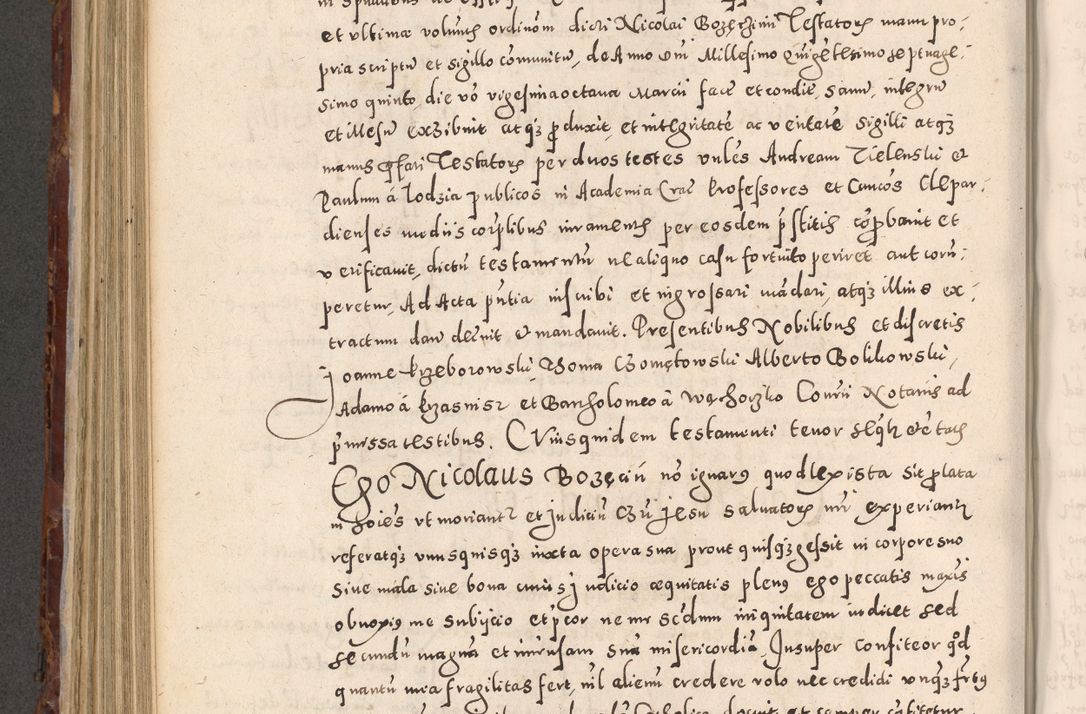 et vltimæ volunts ordinom dicti Nicolai Bozęczini Testatoris manu pro,
pria scriptu et sigillo comunitu, de Anno Dni Millesimo Quigetesimo septuage,
simo quinto die vo vigesimaoctaua Marcii fact et condit, sanu, integru
et illesu exhibuit atqz produxit, et integritate ac veritate sigilli atqz
manus pfati Testatoris per duos testes vnles Andream Zielenski et
Paulum á Lodzia publicos in Academia Crac Professores et Canco's Clepar,
dienses medijs corplibus iuramentis per eosdem pstitis coprobauit et
verificauit, dictu testamentu ne aliquo casu fortuito periret aut corru,
peretur, Ad Acta pntia inscribi et ingrossari madari, atqz illius ex,
tractum dari decreuit et mandauit. Presentibus Nobilibus et discretis
Joanne Krzeborowski, Thoma Czomętowski Alberto Bolikowski,
Adamo á Krzasnisz et Bartholomeo á Wąchoczko Courii Notariis ad
pmissa testibus. Cuiusquidem testamenti tenor seqtr et e talis
Ego Nicolaus Bozęcin no ignarus quod lex ista sit plata
in hoies vt moriantr et Judiciu Chri Jesu Saluatoris nri experiantr
referatqz vnusquisqz iuxta opera sua prout quisqz gessit in corpore suo
siue mala siue bona cuius judicio æquitatis plenus ego peccatis maxis
obnoxius me subijcio et pcor ne me scdum iniquitatem iudicet sed
secundu magna et immensam sua misericordia, Insuper confiteor qd
quantu mea fragilitas fert, nil alienu credere volo nec credidi vnqz